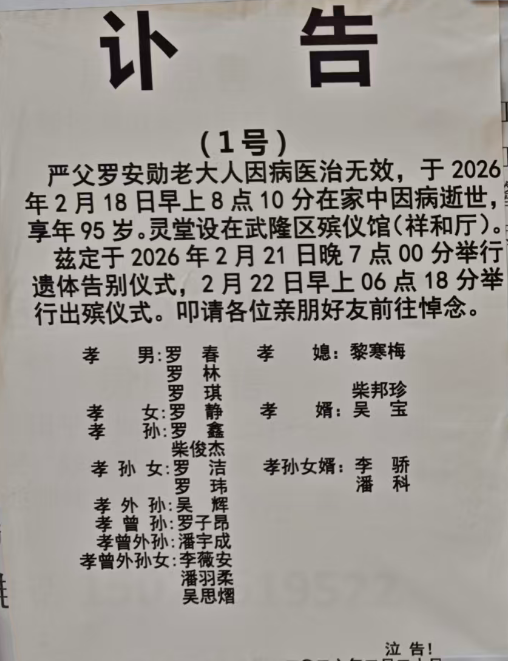 讣 告
(1号)
严父罗安勋老大人因病医治无效，于 2026
年 2 月 18 日早上 8 点 10 分在家中因病逝世，
享年 95 岁。灵堂设在武隆区殡仪馆(祥和厅)。
兹定于 2026 年 2 月 21 日晚 7 点 00 分举行
遗体告别仪式，2 月 22 日早上 06 点 18 分举
行出殡仪式。叩请各位亲朋好友前往悼念。
孝 男:罗 春 孝 媳：黎寒梅
罗 林
罗 琪 柴邦珍
孝 女:罗 静 孝 婿：吴 宝
孝 孙:罗 鑫
柴俊杰
孝 孙 女:罗 洁 孝孙女婿：李 骄
罗 玮 潘 科
孝 外 孙:吴 辉
孝 曾 孙:罗子昂
孝曾外孙:潘宇成
孝曾外孙女:李薇安
潘羽柔
吴思熠
泣 告!